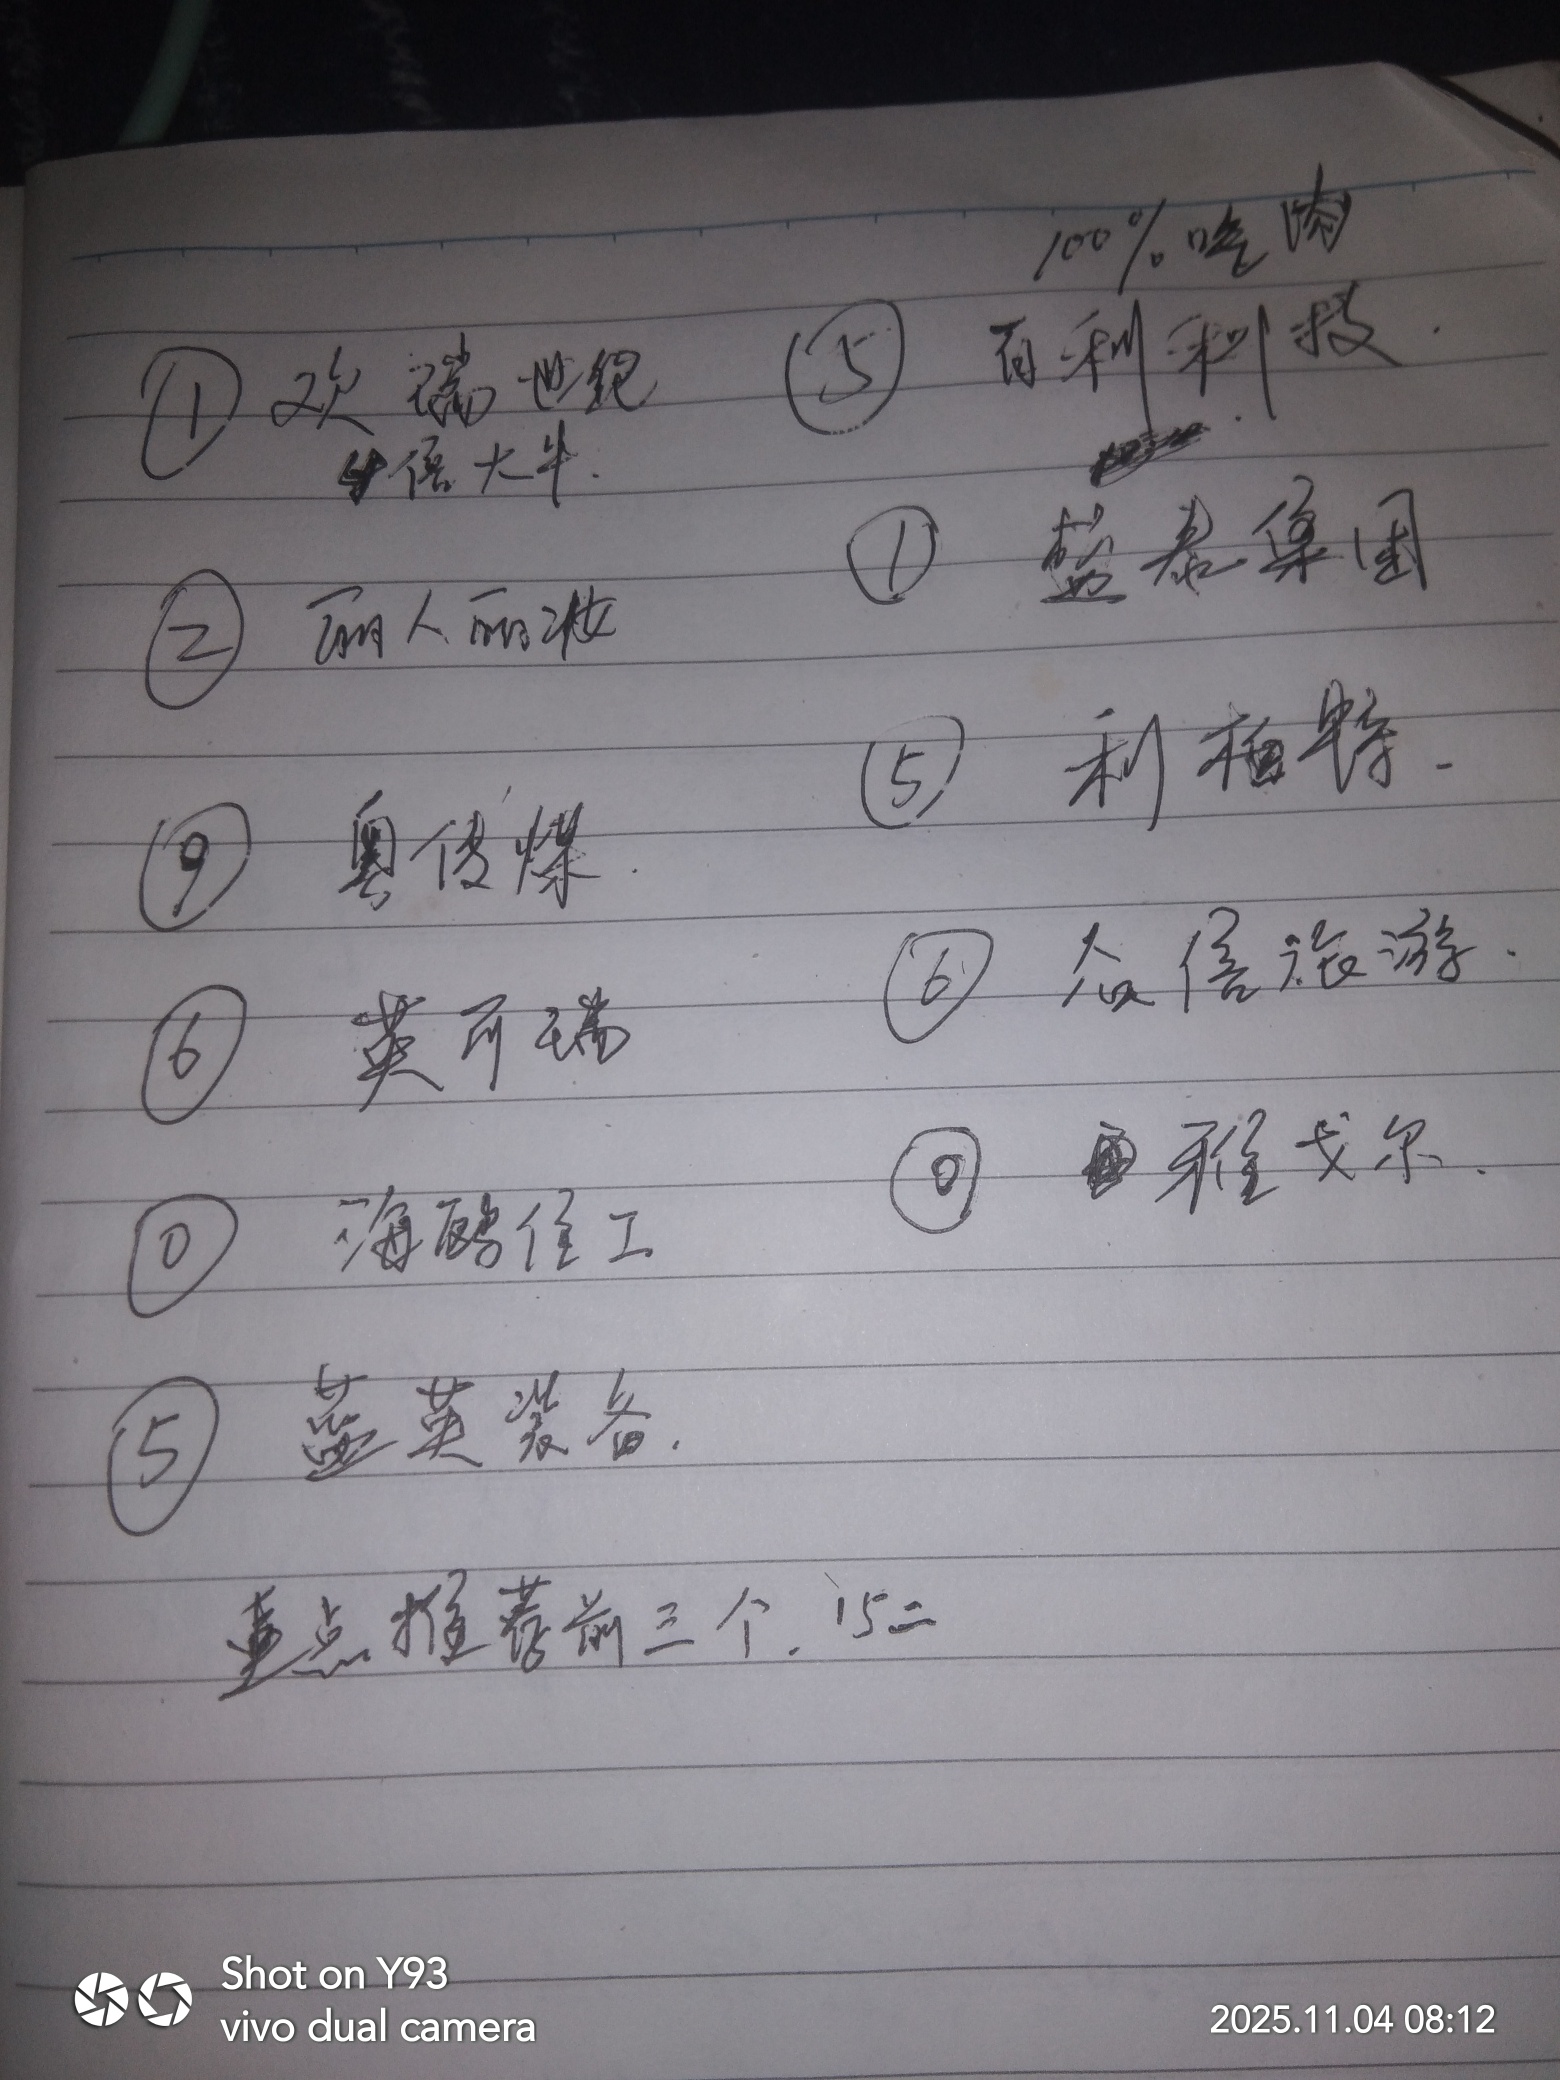 ① 欢瑞世纪
倍大牛.
② 丽人丽妆
⑨ 粤传媒.
⑥ 英可瑞
⓪ 海鸥住工
⑤ 蓝英装备.
重点推荐前三个.
100%吃肉
⑤ 百利科技.
① 蓝泰集团
⑤ 利柏特.
⑥ 众信旅游.
⓪ 雅戈尔.
Shot on Y93
vivo dual camera
2025.11.04 08:12